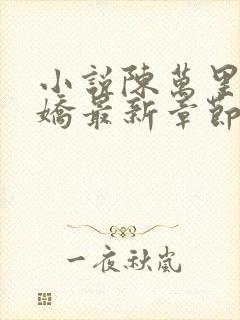 小說陳萬里
嬌最新章節
一夜秋嵐